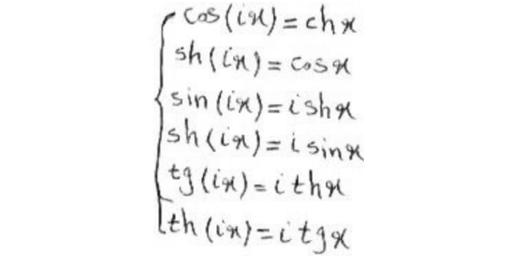 cos(ix)=chx
sh(ix)=cosx
sin(ix)=ishx
sh(ix)=isinx
tg(ix)=ithx
th(ix)=itgx